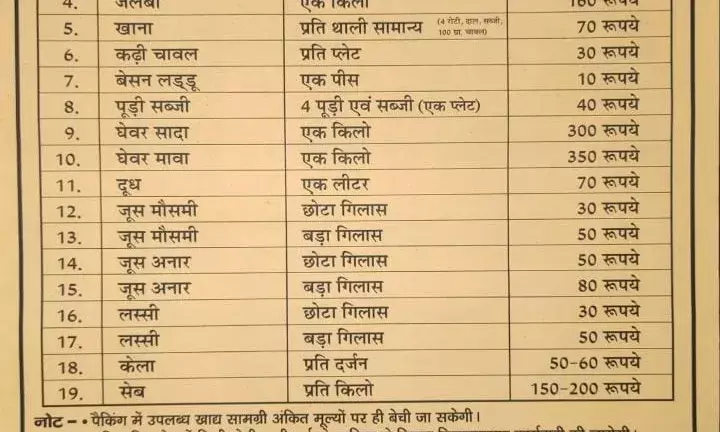 4. जलेबी एक किलो 160 रूपये
5. खाना प्रति थाली सामान्य (4 रोटी, दाल, सब्जी, 100 ग्रा. चावल) 70 रूपये
6. कढ़ी चावल प्रति प्लेट 30 रूपये
7. बेसन लड्डू एक पीस 10 रूपये
8. पूड़ी सब्जी 4 पूड़ी एवं सब्जी (एक प्लेट) 40 रूपये
9. घेवर सादा एक किलो 300 रूपये
10. घेवर मावा एक किलो 350 रूपये
11. दूध एक लीटर 70 रूपये
12. जूस मौसमी छोटा गिलास 30 रूपये
13. जूस मौसमी बड़ा गिलास 50 रूपये
14. जूस अनार छोटा गिलास 50 रूपये
15. जूस अनार बड़ा गिलास 80 रूपये
16. लस्सी छोटा गिलास 30 रूपये
17. लस्सी बड़ा गिलास 50 रूपये
18. केला प्रति दर्जन 50-60 रूपये
19. सेब प्रति किलो 150-200 रूपये
नोट - • पैकिंग में उपलब्ध खाद्य सामग्री अंकित मूल्यों पर ही बेची जा सकेगी।